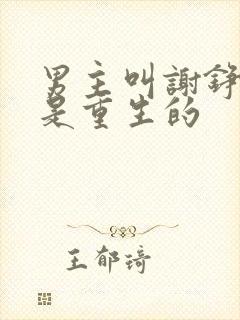 男主叫謝錚
是重生的
王郁琦